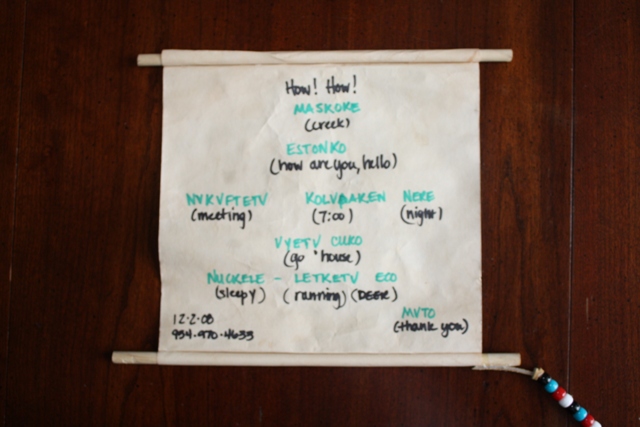 How! How!
MASKOKE
(creek)
ESTONKO
(how are you, hello)
NVKVFTETV KOLVPAKEN NERE
(meeting) (7:00) (night)
VYETV CUKO
(go * house)
NUCKELE - LETKETV ECO
(sleepy) (running) (DEER)
MVTO
(thank you)
12-2-08
954-970-4635